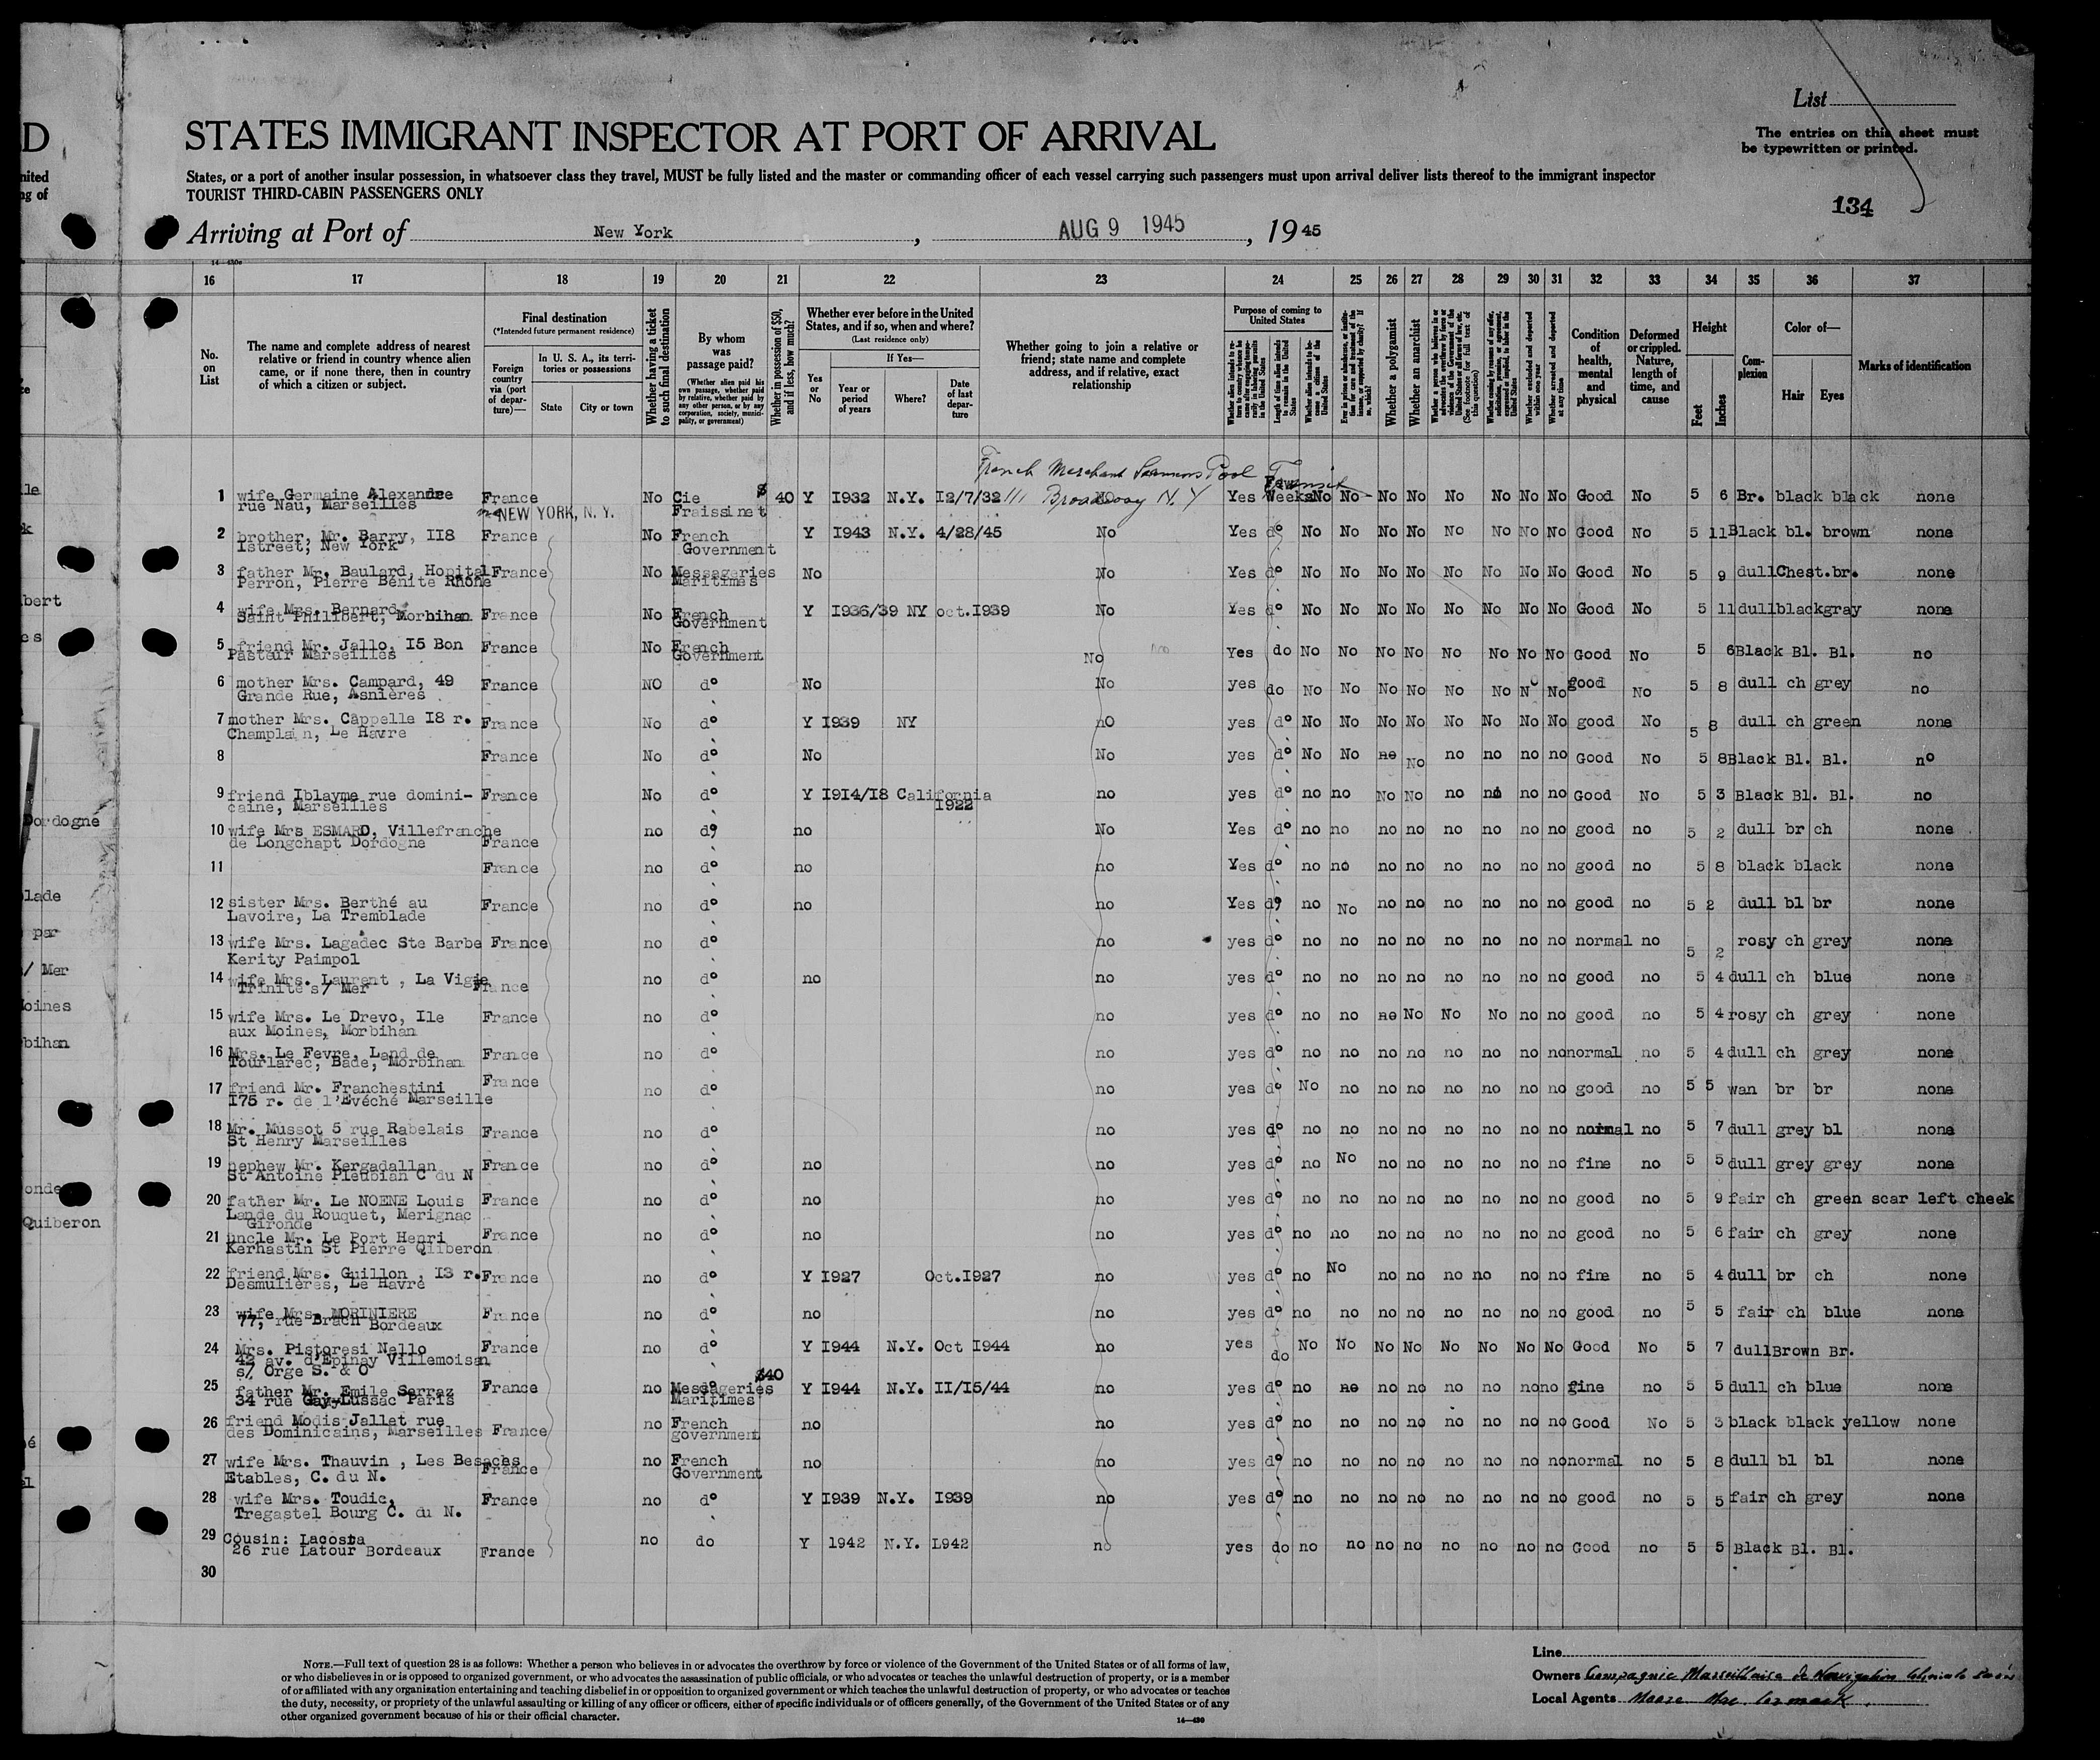 List
The entries on this sheet must
be typewritten or printed.
D
STATES IMMIGRANT INSPECTOR AT PORT OF ARRIVAL
States, or a port of another insular possession, in whatsoever class they travel, MUST be fully listed and the master or commanding officer of each vessel carrying such passengers must upon arrival deliver lists thereof to the immigrant inspector
TOURIST THIRD-CABIN PASSENGERS ONLY
134
Arriving at Port of New York, AUG 9 1945, 19 45
16 17 18 19 20 21 22 23 24 25 26 27 28 29 30 31 32 33 34 35 36 37
No. on List
The name and complete address of nearest relative or friend in country whence alien came, or if none there, then in country of which a citizen or subject.
Final destination
(*Intended future permanent residence)
Foreign country via (port of departure)—
In U. S. A., its territories or possessions
State
City or town
Whether having a ticket to such final destination
By whom was passage paid?
(Whether alien paid his own passage, whether paid by relative, whether paid by any other person, or by any corporation, society, municipality, or government)
Whether in possession of $50, and if less, how much?
Whether ever before in the United States, and if so, when and where?
(Last residence only)
Yes or No
If Yes—
Year or period of years
Where?
Date of last departure
Whether going to join a relative or friend; state name and complete address, and if relative, exact relationship
Purpose of coming to United States
Length of time alien intends to remain in the United States
Whether a polygamist
Whether an anarchist
(See footnote for full text of this question)
Whether arrested and deported at any time
Condition of health, mental and physical
Deformed or crippled. Nature, length of time, and cause
Height
Feet
Inches
Complexion
Color of—
Hair
Eyes
Marks of identification
French Merchant Seamens Pool Transit
1 wife Germaine Alexandre France No Cie $ 40 Y I932 N.Y. I2/7/32 111 Broadway N.Y Yes Few Weeks No No No No No No No No Good No 5 6 Br. black black none
rue Nau, Marseilles NEW YORK, N. Y. Fraissinet
2 brother, Mr. Barry, II8 France No French Y I943 N.Y. 4/28/45 No Yes d° No No No No No No No No Good No 5 11 Black bl. brown none
Istreet, New York Government
3 father Mr. Baulard, Hopital France No Messageries No No Yes d° No No No No No No No No Good No 5 9 dull Chest.br. none
Perron, Pierre Bénite Rhône Maritimes
4 wife Mrs. Bernard, France No French Y I936/39 NY oct.I939 No Yes d° No No No No No No No No Good No 5 11 dull black gray none
Saint Philibert, Morbihan Government
5 friend Mr. Jallo, I5 Bon France No French No Yes do No No No No No No No No Good No 5 6 Black Bl. Bl. no
Pasteur Marseilles Government
6 mother Mrs. Campard, 49 France NO d° No No yes do No No No No No No N° No good No 5 8 dull ch grey no
Grande Rue, Asnières
7 mother Mrs. Cappelle I8 r. France No d° Y I939 NY nO yes d° No No No No No No No No good No 5 8 dull ch green none
Champlain, Le Havre
8 France No d° No No yes d° No No no No no no no no Good No 5 8 Black Bl. Bl. n°
9 friend Iblayme rue domini- France No d° Y I9I4/I8 California no yes d° no no No No no no no no Good No 5 3 Black Bl. Bl. no
caine, Marseilles I922
10 wife Mrs ESMARD, Villefranche no d° no No Yes d° no no no no no no no no good no 5 2 dull br ch none
de Longchapt Dordogne France
11 France no d° no no Yes d° no no no no no no no no good no 5 8 black black none
12 sister Mrs. Berthé au France no d° no no Yes d° no No no no no no no no good no 5 2 dull bl br none
Lavoire, La Tremblade
13 wife Mrs. Lagadec Ste Barbe France no d° no yes d° no no no no no no no no normal no 5 2 rosy ch grey none
Kerity Paimpol
14 wife Mrs. Laurent , La Vigie no d° no no yes d° no no no no no no no no good no 5 4 dull ch blue none
Trinité s/ Mer France
15 wife Mrs. Le Drevo, Ile France no d° no yes d° no no no No No No no no good no 5 4 rosy ch grey none
aux Moines, Morbihan
16 Mrs. Le Fevre, Land de France no d° no yes d° no no no no no no no no normal no 5 4 dull ch grey none
Tourlarec, Bade, Morbihan
17 friend Mr. Franchestini France no d° no yes d° No no no no no no no no good no 5 5 wan br br none
I75 r. de l'Evéché Marseille
18 Mr. Mussot 5 rue Rabelais France no d° no yes d° no no no no no no no no normal no 5 7 dull grey bl none
St Henry Marseilles
19 nephew Mr. Kergadallan France no d° no no yes d° no No no no no no no no fine no 5 5 dull grey grey none
St Antoine Pleubian C du N
20 father Mr. Le NOENE Louis France no d° no no yes d° no no no no no no no no good no 5 9 fair ch green scar left cheek
Lande du Rouquet, Merignac
Gironde
21 uncle Mr. Le Port Henri France no d° no no yes d° no no no no no no no no good no 5 6 fair ch grey none
Kerhastin St Pierre Qiiberon
22 friend Mrs. Guillon , I3 r. France no d° Y I927 Oct.I927 no yes d° no No no no no no no no fine no 5 4 dull br ch none
Desmulières, Le Havre
23 wife Mrs. MORINIERE France no d° no no yes d° no no no no no no no no good no 5 5 fair ch blue none
77, rue Brach Bordeaux
24 Mrs. Pistoresi Nello France no d° Y I944 N.Y. Oct I944 no yes do No No No No No No No No Good No 5 7 dull Brown Br.
42 av. d'Epinay Villemoisan
s/ Orge S. & O
25 father Mr. Emile Sarraz France no Messageries $40 Y I944 N.Y. II/I5/44 no yes d° no no no no no no no no fine no 5 5 dull ch blue none
34 rue Gay-Lussac Paris Maritimes
26 friend Modis Jallet rue no French no no yes d° no no no no no no no no Good No 5 3 black black yellow none
des Dominicains, Marseilles France government
27 wife Mrs. Thauvin , Les Besaches France no French no no yes d° no no no no no no no no normal no 5 8 dull bl bl none
Etables, C. du N. Government
28 wife Mrs. Toudic, France no d° Y I939 N.Y. I939 no yes d° no no no no no no no no good no 5 5 fair ch grey none
Tregastel Bourg C. du N.
29 Cousin: Lacosta no do Y 1942 N.Y. I942 no yes do no no no no no no no no Good no 5 5 Black Bl. Bl.
26 rue Latour Bordeaux France
30
NOTE.—Full text of question 28 is as follows: Whether a person who believes in or advocates the overthrow by force or violence of the Government of the United States or of all forms of law,
or who disbelieves in or is opposed to organized government, or who advocates the assassination of public officials, or who advocates or teaches the unlawful destruction of property, or is a member
of or affiliated with any organization entertaining and teaching disbelief in or opposition to organized government or which teaches the unlawful destruction of property, or who advocates or teaches
the duty, necessity, or propriety of the unlawful assaulting or killing of any officer or officers, either of specific individuals or of officers generally, of the Government of the United States or of any
other organized government because of his or their official character.
14—430
Line
Owners Compagnie Marseillaise de Navigation
Local Agents Moore Mac Cormack